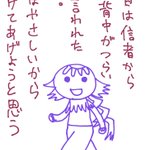 は信者から
背中がつらい
言われた
。
はやさしいから
けてあげようと思う